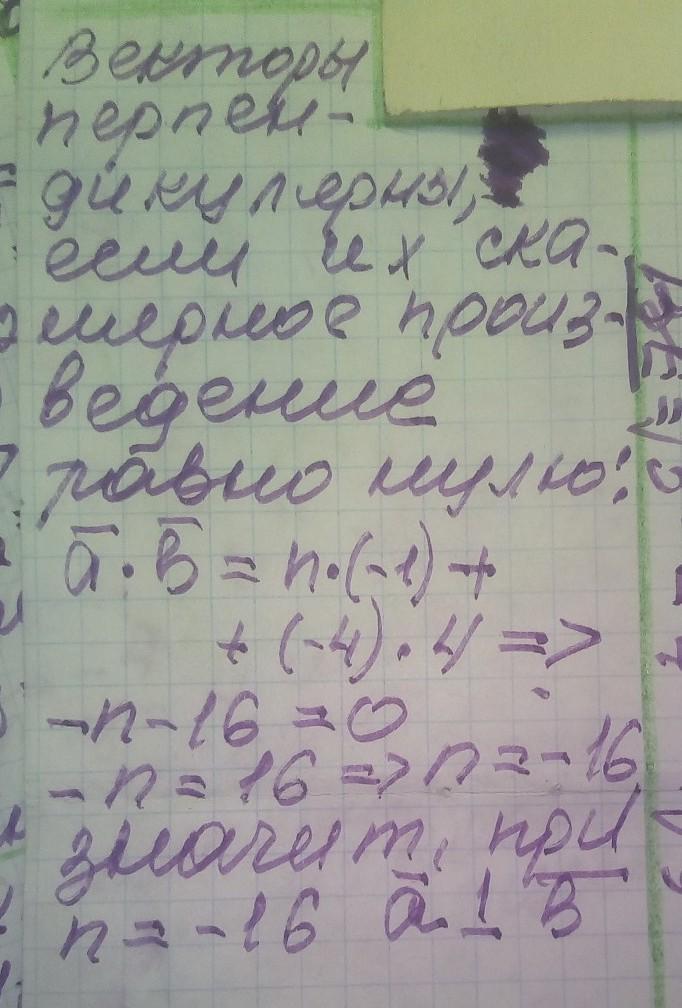 Векторы
перпен-
дикулярны,
если их ска-
лярное произ-
ведение
равно нулю:
a̅·b̅ = n·(-1) +
+ (-4)·4 =>
-n-16 = 0
-n = 16 => n = -16
значит, при
n = -16 a̅ ⊥ b̅